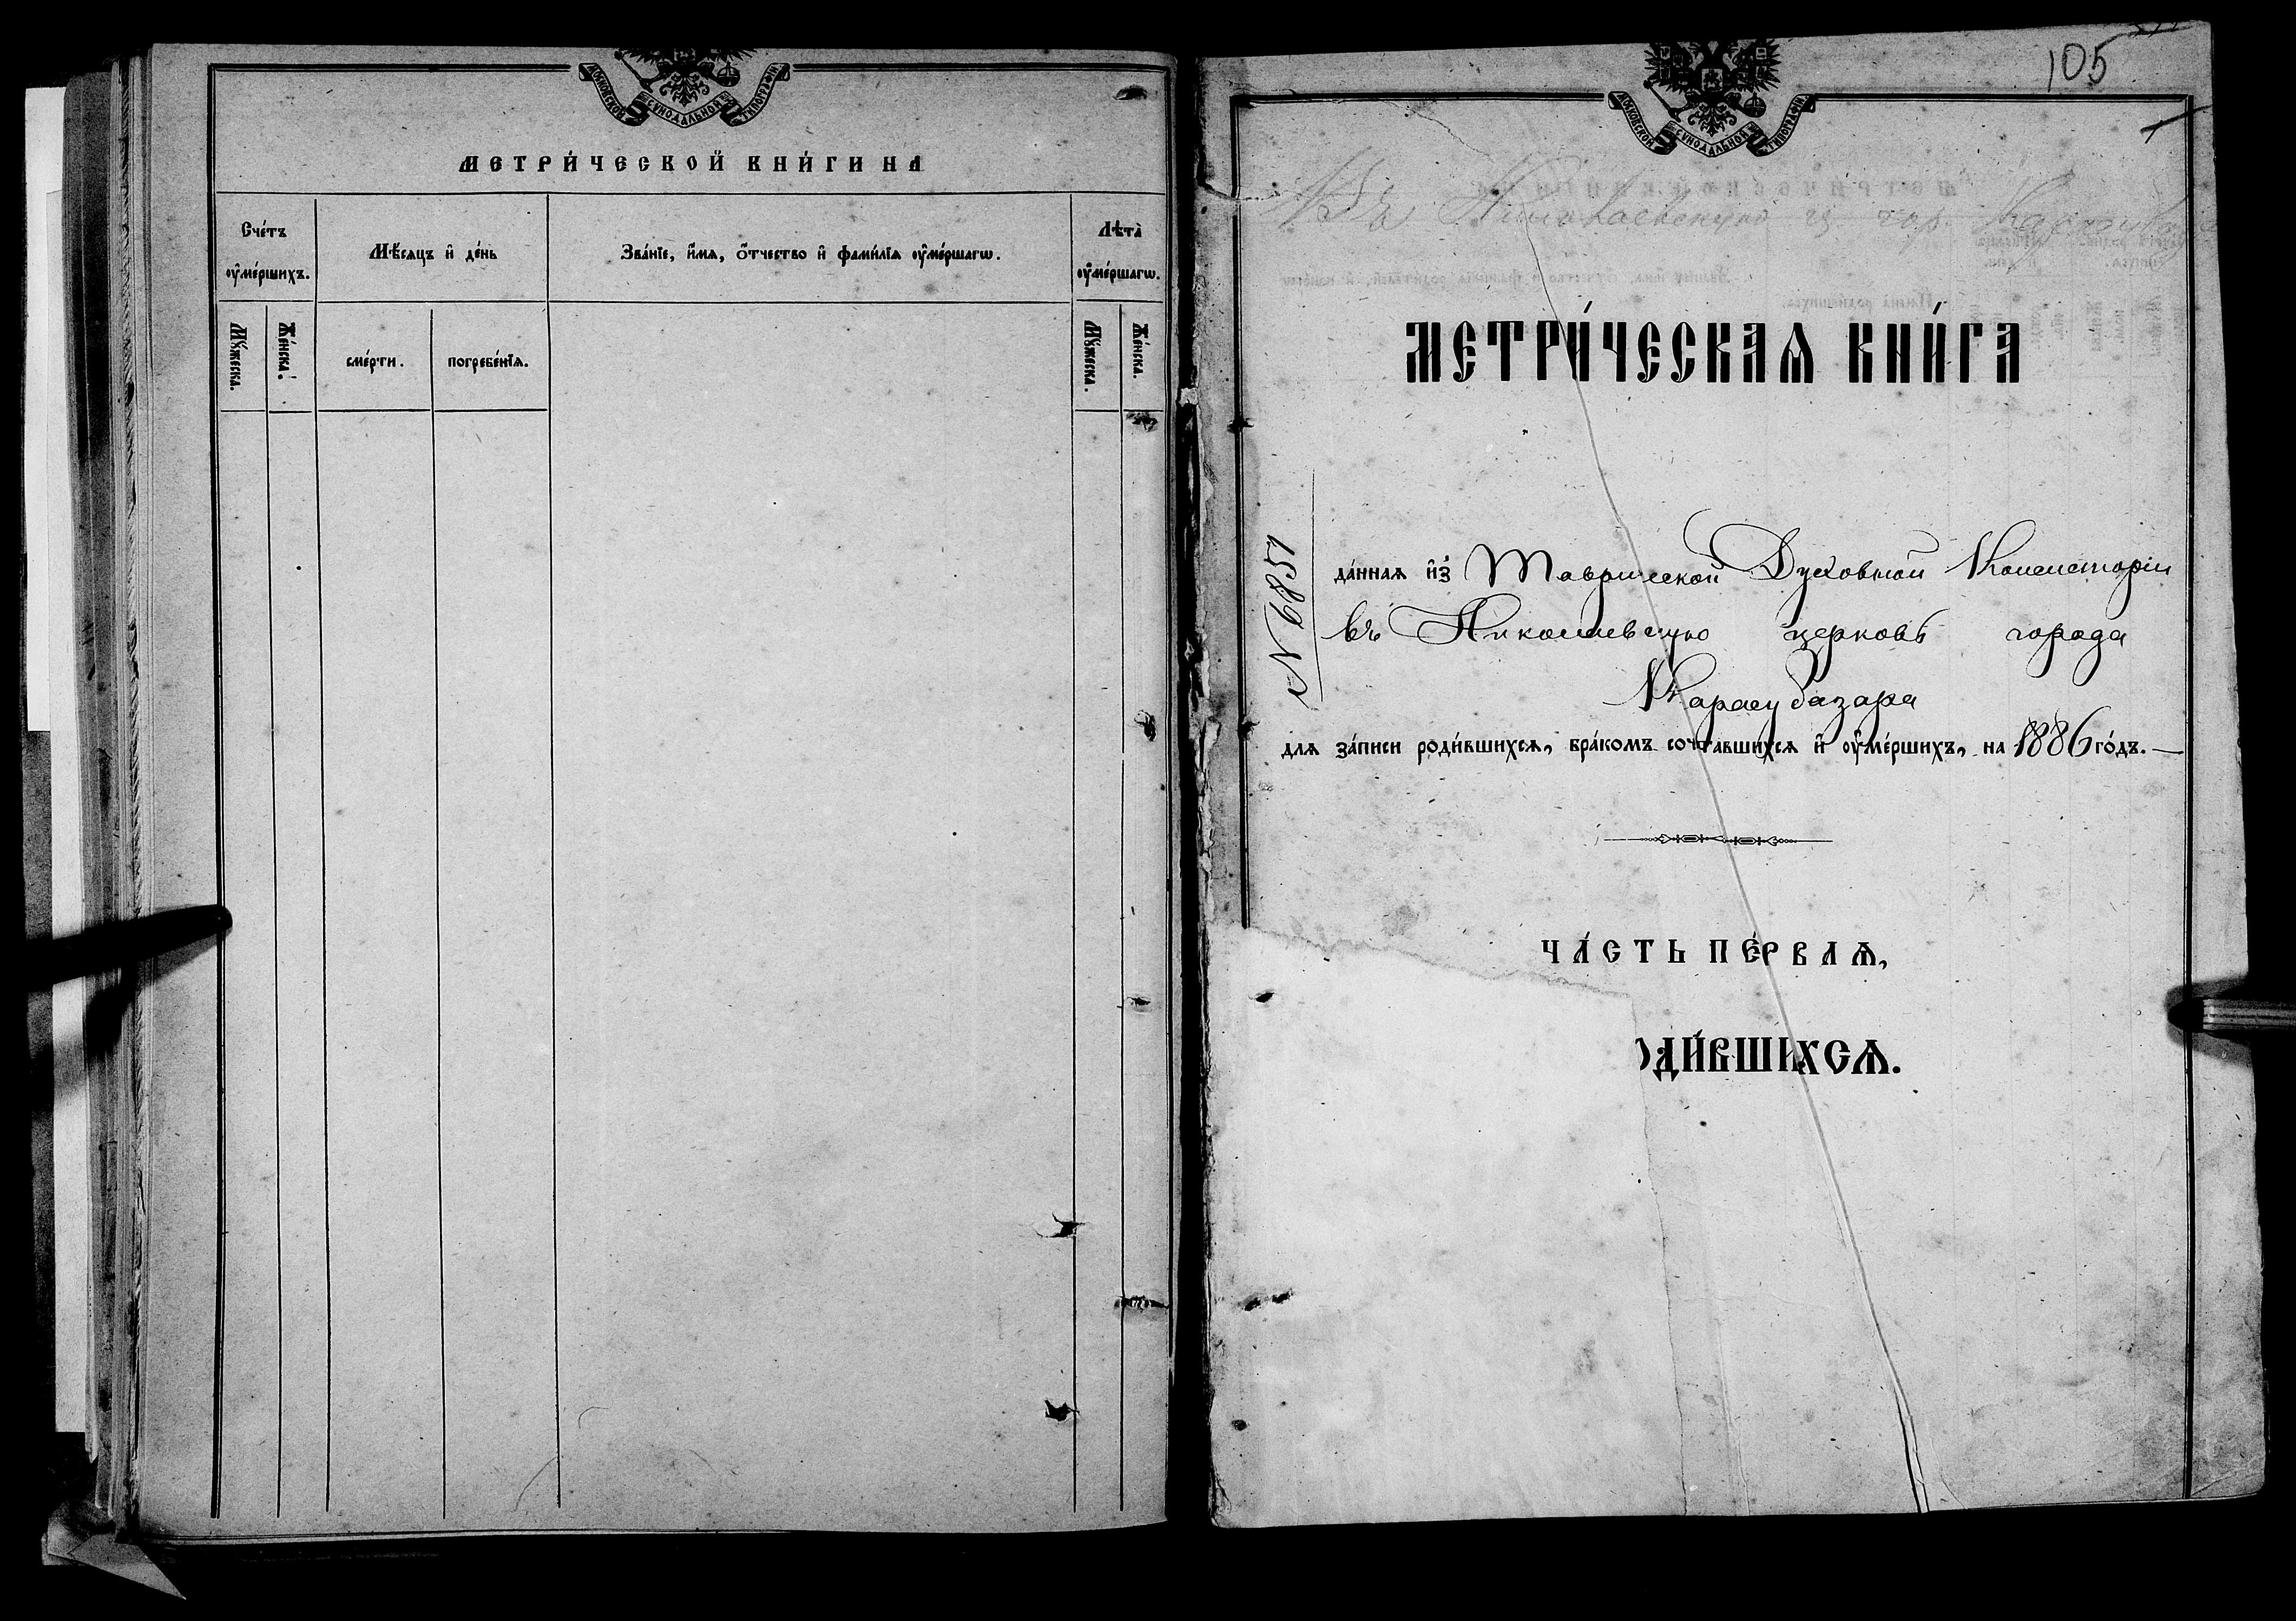 МОСКОВСКОЙ СѴНОДАЛЬНОЙ ТИПОГРАФІИ
МЕТРИ́ЧЕСКОЙ КНИ́ГИ НА
Сче́тъ ᲂу҆ме́ршихъ.
Мѣ́сяцъ и҆ де́нь
Зва́нїе, и҆́мѧ, ѻ҆́тчество и҆ фами́лїѧ ᲂу҆ме́ршагѡ.
Лѣ́та ᲂу҆ме́ршагѡ.
Мꙋ́жеска.
Же́нска.
сме́рти.
погребе́нїѧ.
Мꙋ́жеска.
Же́нска.
105
МОСКОВСКОЙ СѴНОДАЛЬНОЙ ТИПОГРАФІИ
Въ Николаевскую ц. гор.
МЕТРИ́ЧЕСКАѦ КНИ́ГА
№ 6851
да́ннаѧ и҆з̾ Таврической Духовной Консисторіи
въ Николаевскую церковь города
Карасубазара
для за́писи роди́вшихсѧ, бра́комъ сочета́вшихсѧ и҆ ᲂу҆ме́ршихъ, на 1886 го́дъ.
ЧА́СТЬ ПЕ́РВАѦ,
ОДИ́ВШИХСѦ.